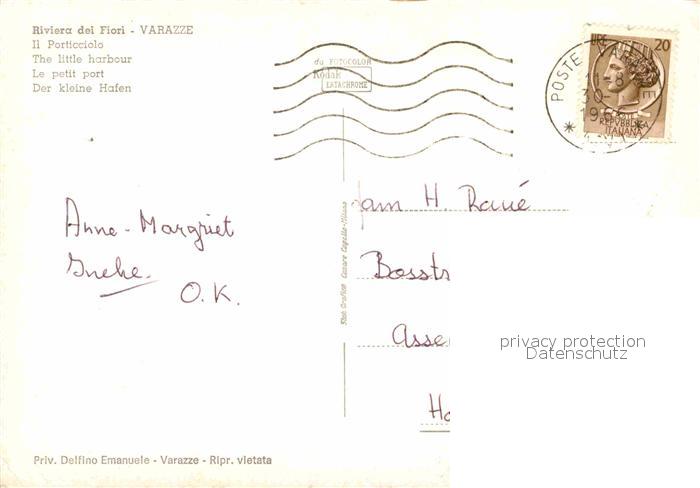 Riviera dei Fiori - VARAZZE
Il Porticciolo
The little harbour
Le petit port
Der kleine Hafen
da FOTOCOLOR
Kodak
EKTACHROME
LIRE 20
POSTE
30-
196
POSTE
REPVBBLICA
ITALIANA
Anne-Margriet
Ineke.
O.K.
Fam H. Raué
Bosstr
Asse
Ho
privacy protection
Datenschutz
Stab. Grafico Cesare Capello-Milano
Priv. Delfino Emanuele - Varazze - Ripr. vietata